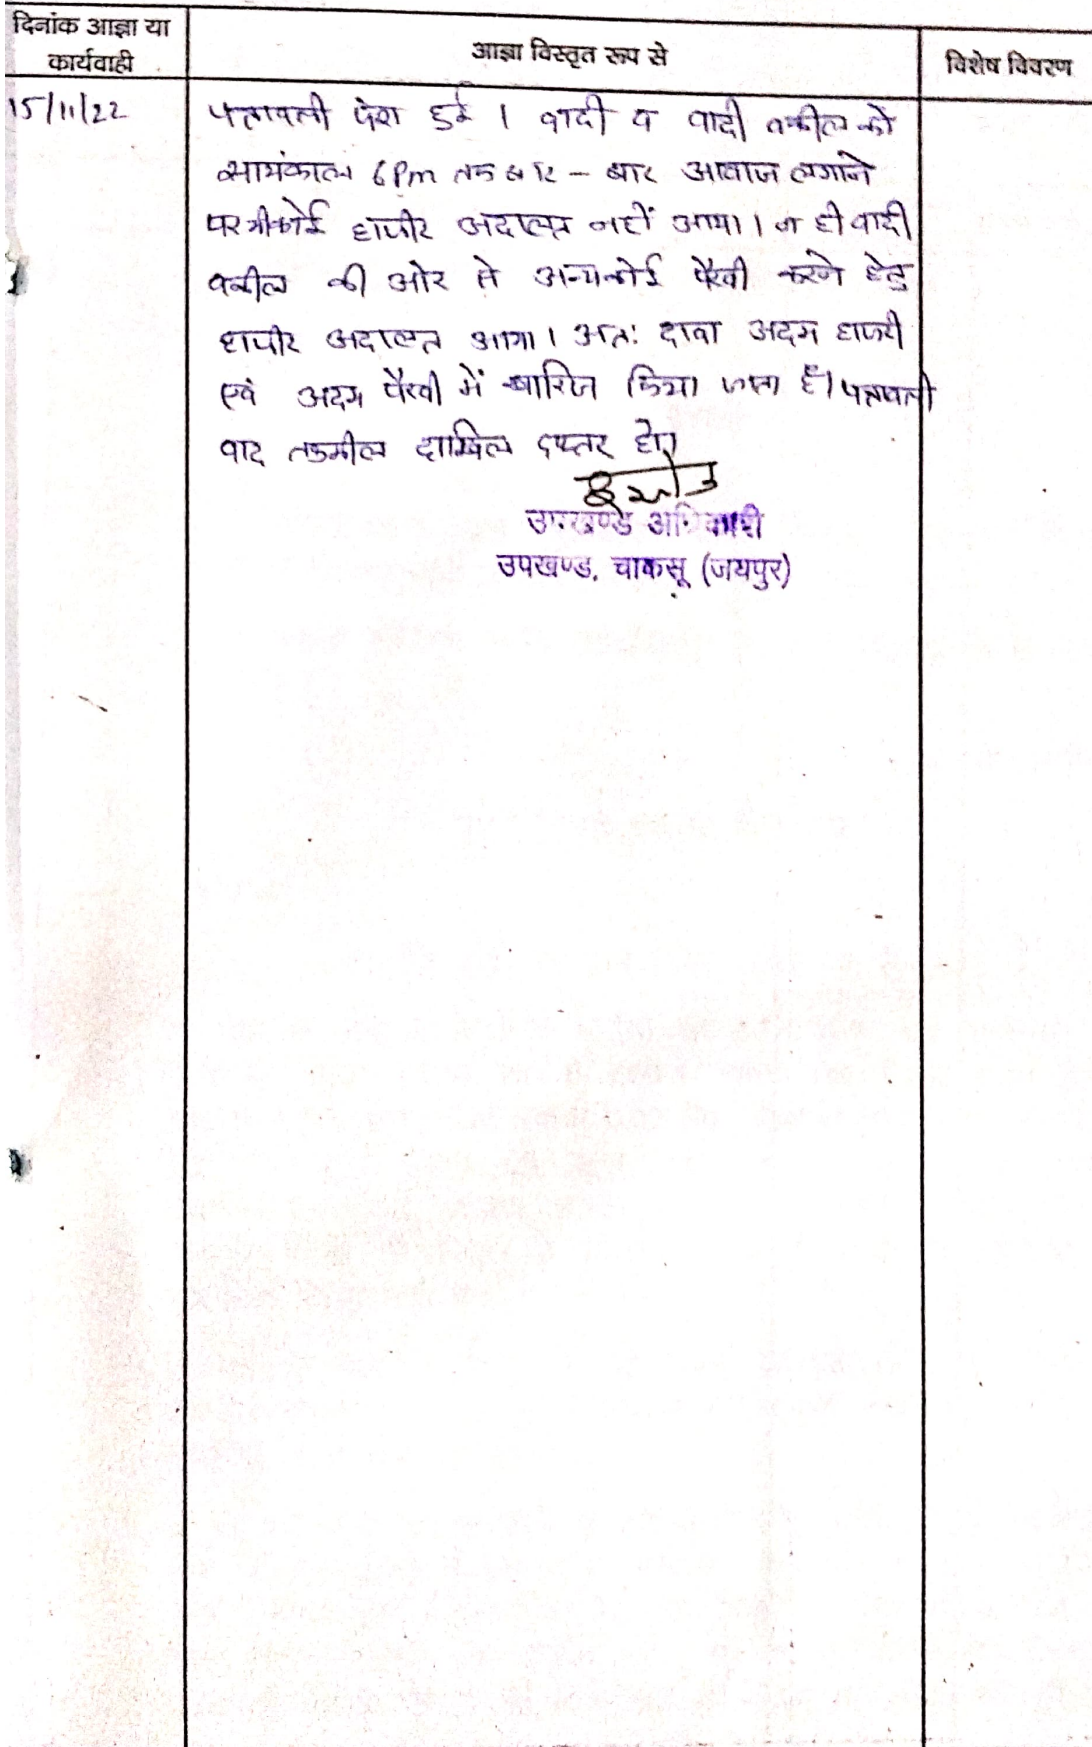 दिनांक आज्ञा या
कार्यवाही
आज्ञा विस्तृत रूप से
विशेष विवरण
15/11/22
पत्रावली पेश हुई । वादी व वादी वकील को
सायंकाल 6 Pm तक बार - बार आवाज लगाने
पर भी कोई हाजीर अदालत नहीं आया । न ही वादी
वकील की ओर से अन्य कोई पैरवी करने हेतु
हाजीर अदालत आया । अतः दावा अदम हाजरी
एवं अदम पैरवी में खारिज किया जाता है। पत्रावली
वाद तकमील दाखिल दफ्तर हो।
उपखण्ड अधिकारी
उपखण्ड, चाकसू (जयपुर)